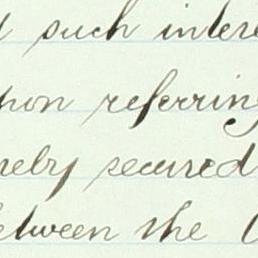 such intere
pon referring
reby secured
etween the